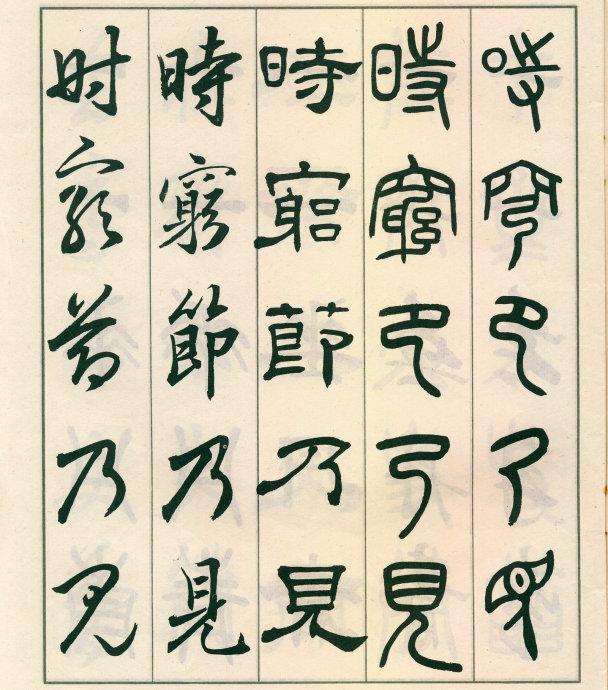 時窮節乃見
時窮節乃見
時窮節乃見
時窮節乃見
时窮節乃見